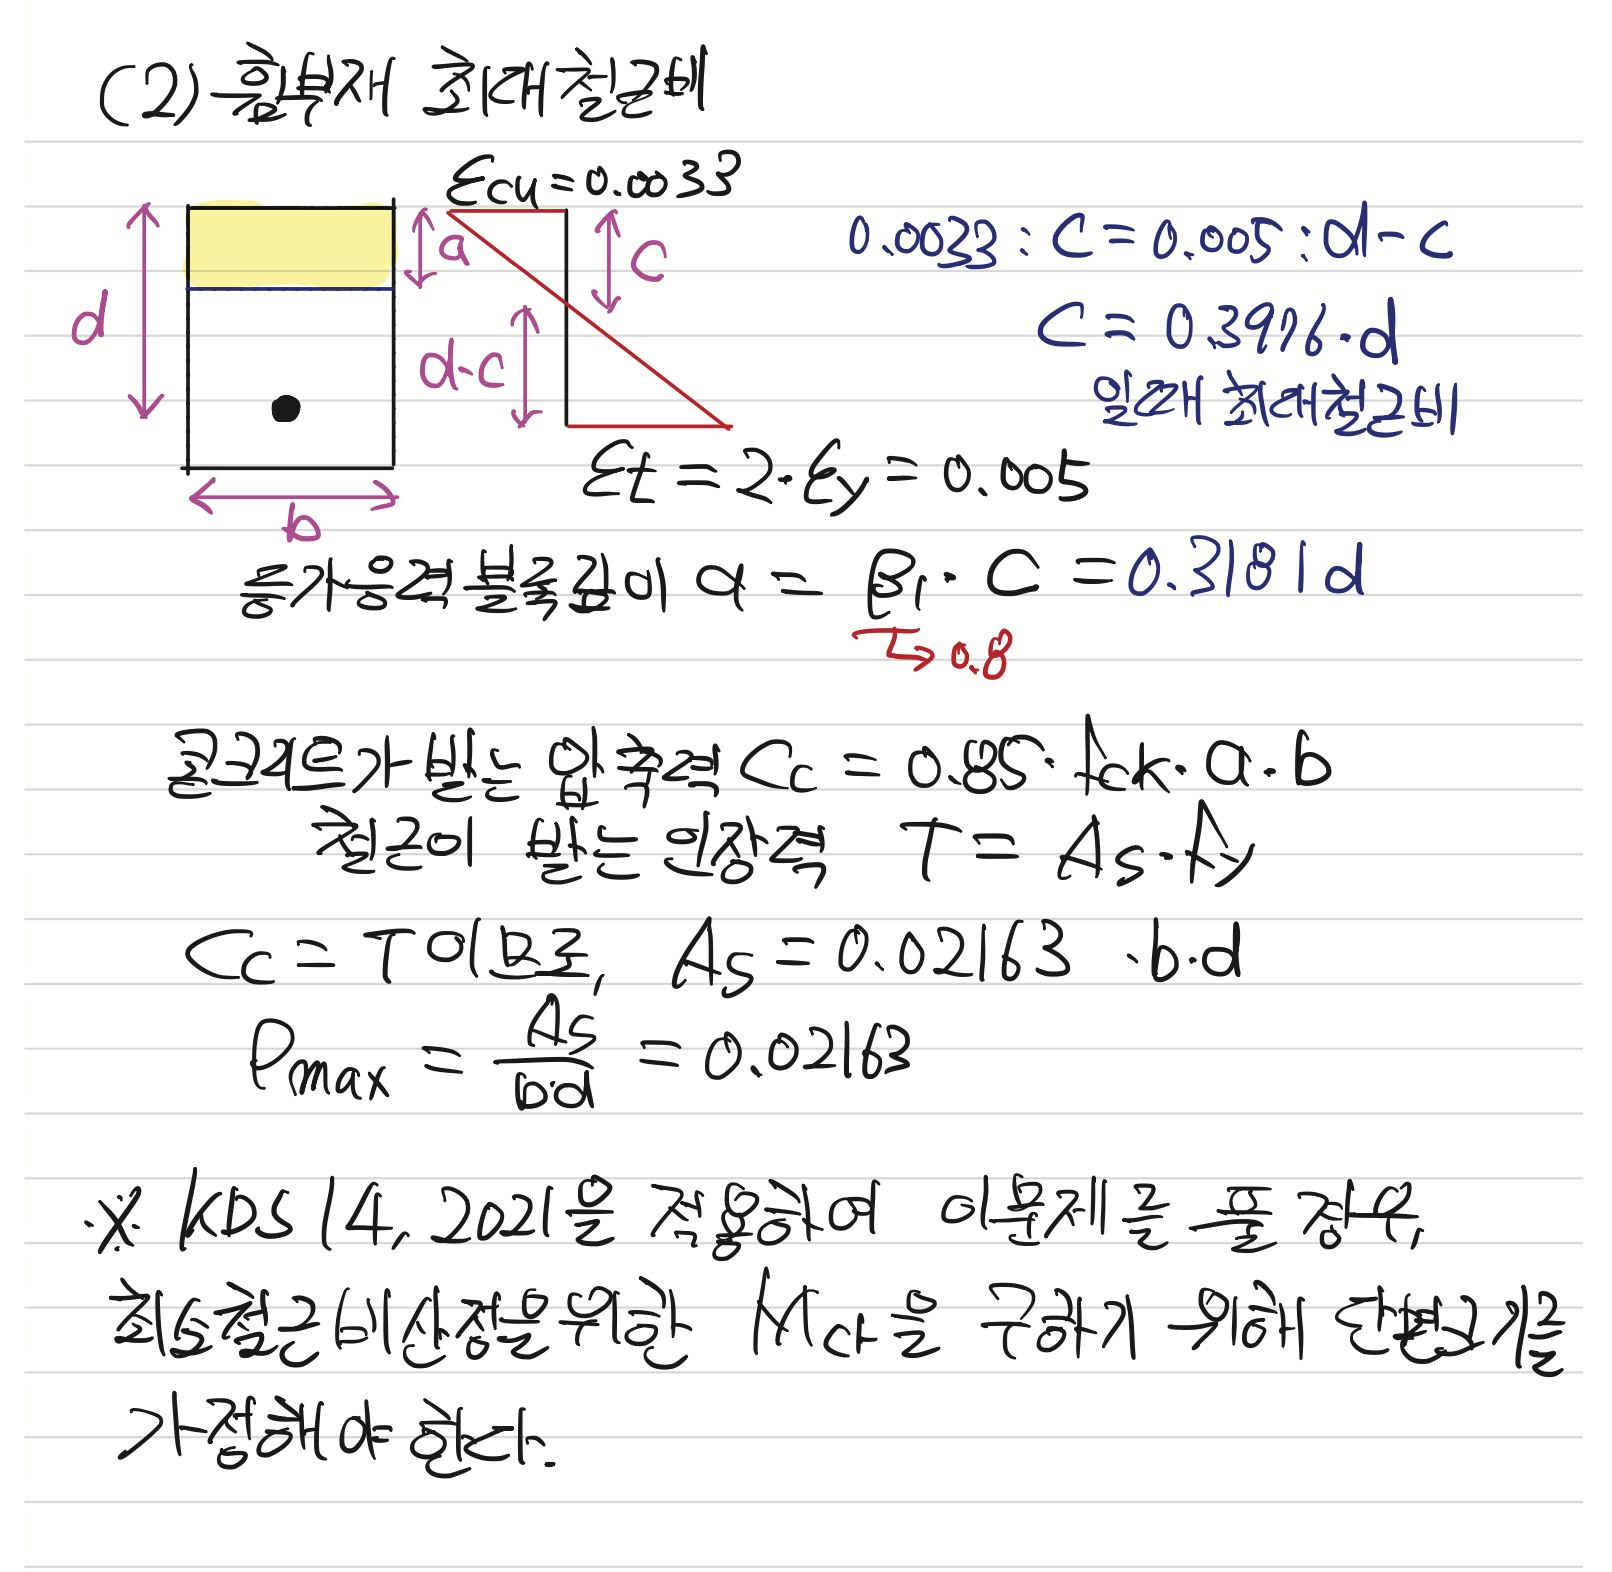 (2) 휨부재 최대철근비
εcu = 0.0033
a
c
d
d-c
b
0.0033 : C = 0.005 : d-c
C = 0.3976·d
일때 최대철근비
εt = 2·εy = 0.005
등가응력블록깊이 a = β1·C = 0.3181d
→ 0.8
콘크리트가 받는 압축력 Cc = 0.85·fck·a·b
철근이 받는 인장력 T = As·fy
Cc = T 이므로, As = 0.02163 ·b·d
ρmax = As/bd = 0.02163
※ KDS 14, 2021을 적용하여 이 문제를 풀 경우,
최소철근비 산정을 위한 Mcr을 구하기 위해 단면크기를
가정해야 한다.